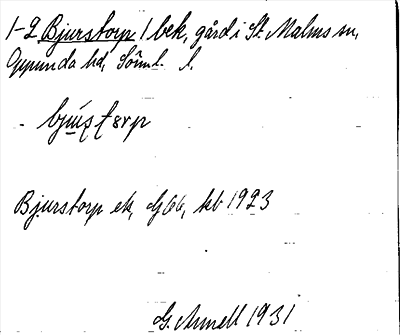 1-2 Bjurstorp / bek, gård i St. Malms sn,
Oppunda hd, Söml. l.
Bjurstorp ek, G66, kb 1923
G. Armell 1931